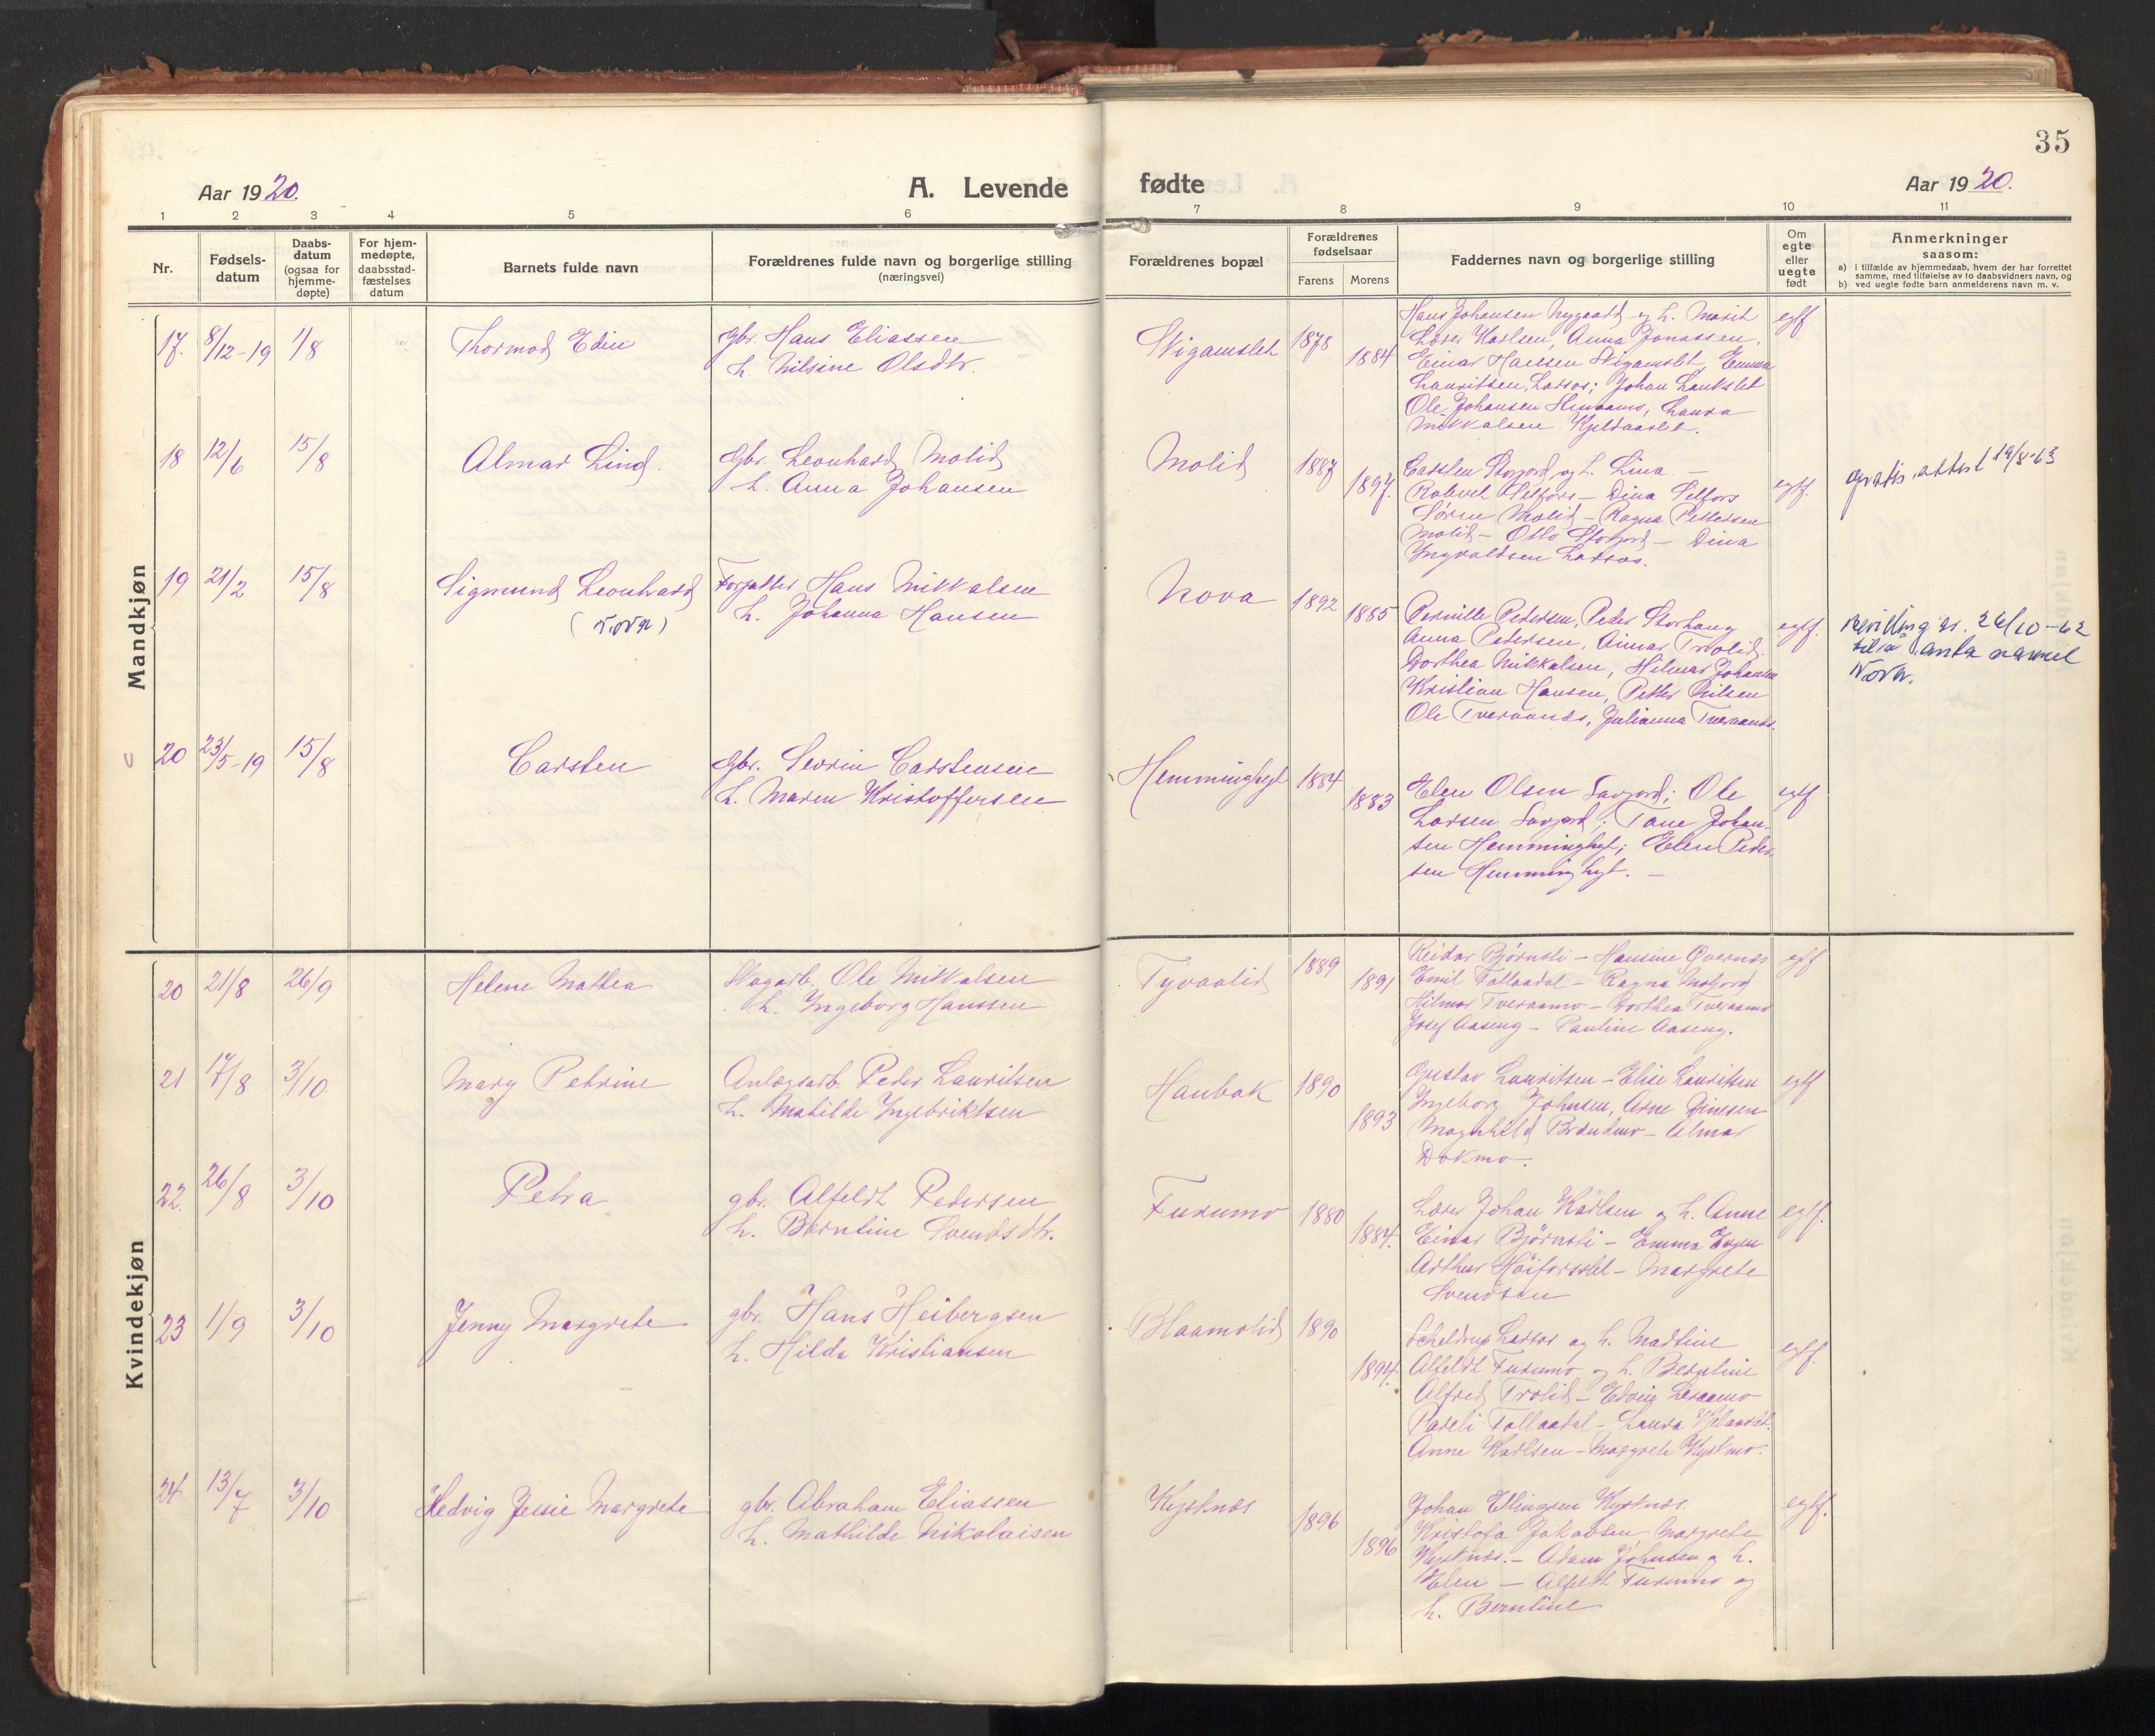 35
Aar 1920.
A. Levende fødte
Aar 1920.
1 2 3 4 5 6 7 8 9 10 11
Nr.
Fødselsdatum
Daabsdatum (ogsaa for hjemmedøpte)
For hjemmedøpte, daabsstadfæstelses datum
Barnets fulde navn
Forældrenes fulde navn og borgerlige stilling
(næringsvei)
Forældrenes bopæl
Forældrenes fødselsaar
Farens Morens
Faddernes navn og borgerlige stilling
Om egte eller uegte født
Anmerkninger
saasom:
a) i tilfælde av hjemmedaab, hvem der har forrettet samme, med tilføielse av to daabsvidners navn, og
b) ved uegte fødte barn anmelderens navn m. v.
Mandkjøn
17. 8/12-19 1/8 Thormod Edin
Gbr. Hans Eliassen
h. Nilsine Olsdtr.
1878 1884
Hans Johansen Nygaard og h. Marit
Lærer Karlsen, Anna Jonassen,
Einar Hansen
Lauritsen, Larsos; Johan
Ole Johansen Laura
Mikkalsen
egtf
18 12/6 15/8 Almar Lind.
Gbr. Leonhard Molid
h. Anna Johansen
Molid 1887 1897.
Carsten Storjord og h. Lina. —
Robert Selfors — Dina Selfors
Søren Molid — Ragna Pettersen
Molid — Otto Storjord — Dina
Ingvaldsen Larsos.
egtf.
gratis attest 19/8-63
19 21/2 15/8 Sigmund Leonhard
(Nova)
Forpakter Hans Mikkalsen
h. Johanna Hansen
Nova 1892 1885
Pernille Pedersen, Peder Storhaug
Anna Pedersen, Einar Trolid.
Dorthea Mikkalsen, Hilmar Johansen
Kristian Hansen, Petter Nilsen
Ole Tveraanes, Julianna Tveraanes.
egtf.
Bevilling av 26/10-62
til å anta navnet
Nova.
20 23/5-19 15/8 Carsten
Gbr. Sevrin Carstensen
h. Maren Kristoffersen
Hemminghyt 1884 1883
Elen Olsen Savjord; Ole
Larsen Savjord; Tane Johan-
sen Hemminghyt; Elen Peder-
sen Hemminghyt. —
egtf
Kvindekjøn
20 21/8 26/9 Helene Mathea
Ole Mikkalsen
h. Ingeborg Hanssen
Tyvaalid 1889 1891
Reidar Bjørnsti — Hansine Qvernes
Emil Tollaadal — Ragna
Hilmar Tveraamo — Dorthea Tveraamo
Josef Aaseng — Pauline Aaseng.
egtf
21 17/8 3/10 Mary Petrine
Anlægsarb. Peder Lauritsen
h. Mathilde Ingebriktsen
Haubak 1890 1893
Gustav Lauritsen — Elise Lauritsen
Ingeborg Johnsen, Arne Dinesen
Magnhild — Almar
Dokmo.
egtf
22. 26/8 3/10 Petra
gbr. Alfeldt Pedersen
h. Berntine Svendsdtr.
Furumo 1880 1884.
Lærer Johan Karlsen og h. Anne
Einar Bjørnsti — Emma
Arthur Høiforsslet — Margrete
Svendsen
egtf.
23 1/9 3/10 Jenny Margrete
gbr. Hans Heibergsen
h. Hilda Kristiansen
Blaamolid 1890 1894.
Scheldrup Larsos og h. Martine
Alfeldt Furumo og h. Berntine
Alfred Trolid — Edvin Leraamo
Pareli Tollaadal — Laura
Anne Karlsen — Margrete
egtf.
24 13/7 3/10 Hedvig Jessie Margrete
gbr. Abraham Eliassen
h. Mathilde Nikolaisen
Kystnes 1896 1896
Johan Ellingsen Kystnes
Kristofa Jakobsen Margrete
Kystnes. — Adam Johnsen og h.
Elen — Alfeldt Furumo og
h. Berntine
egtf.